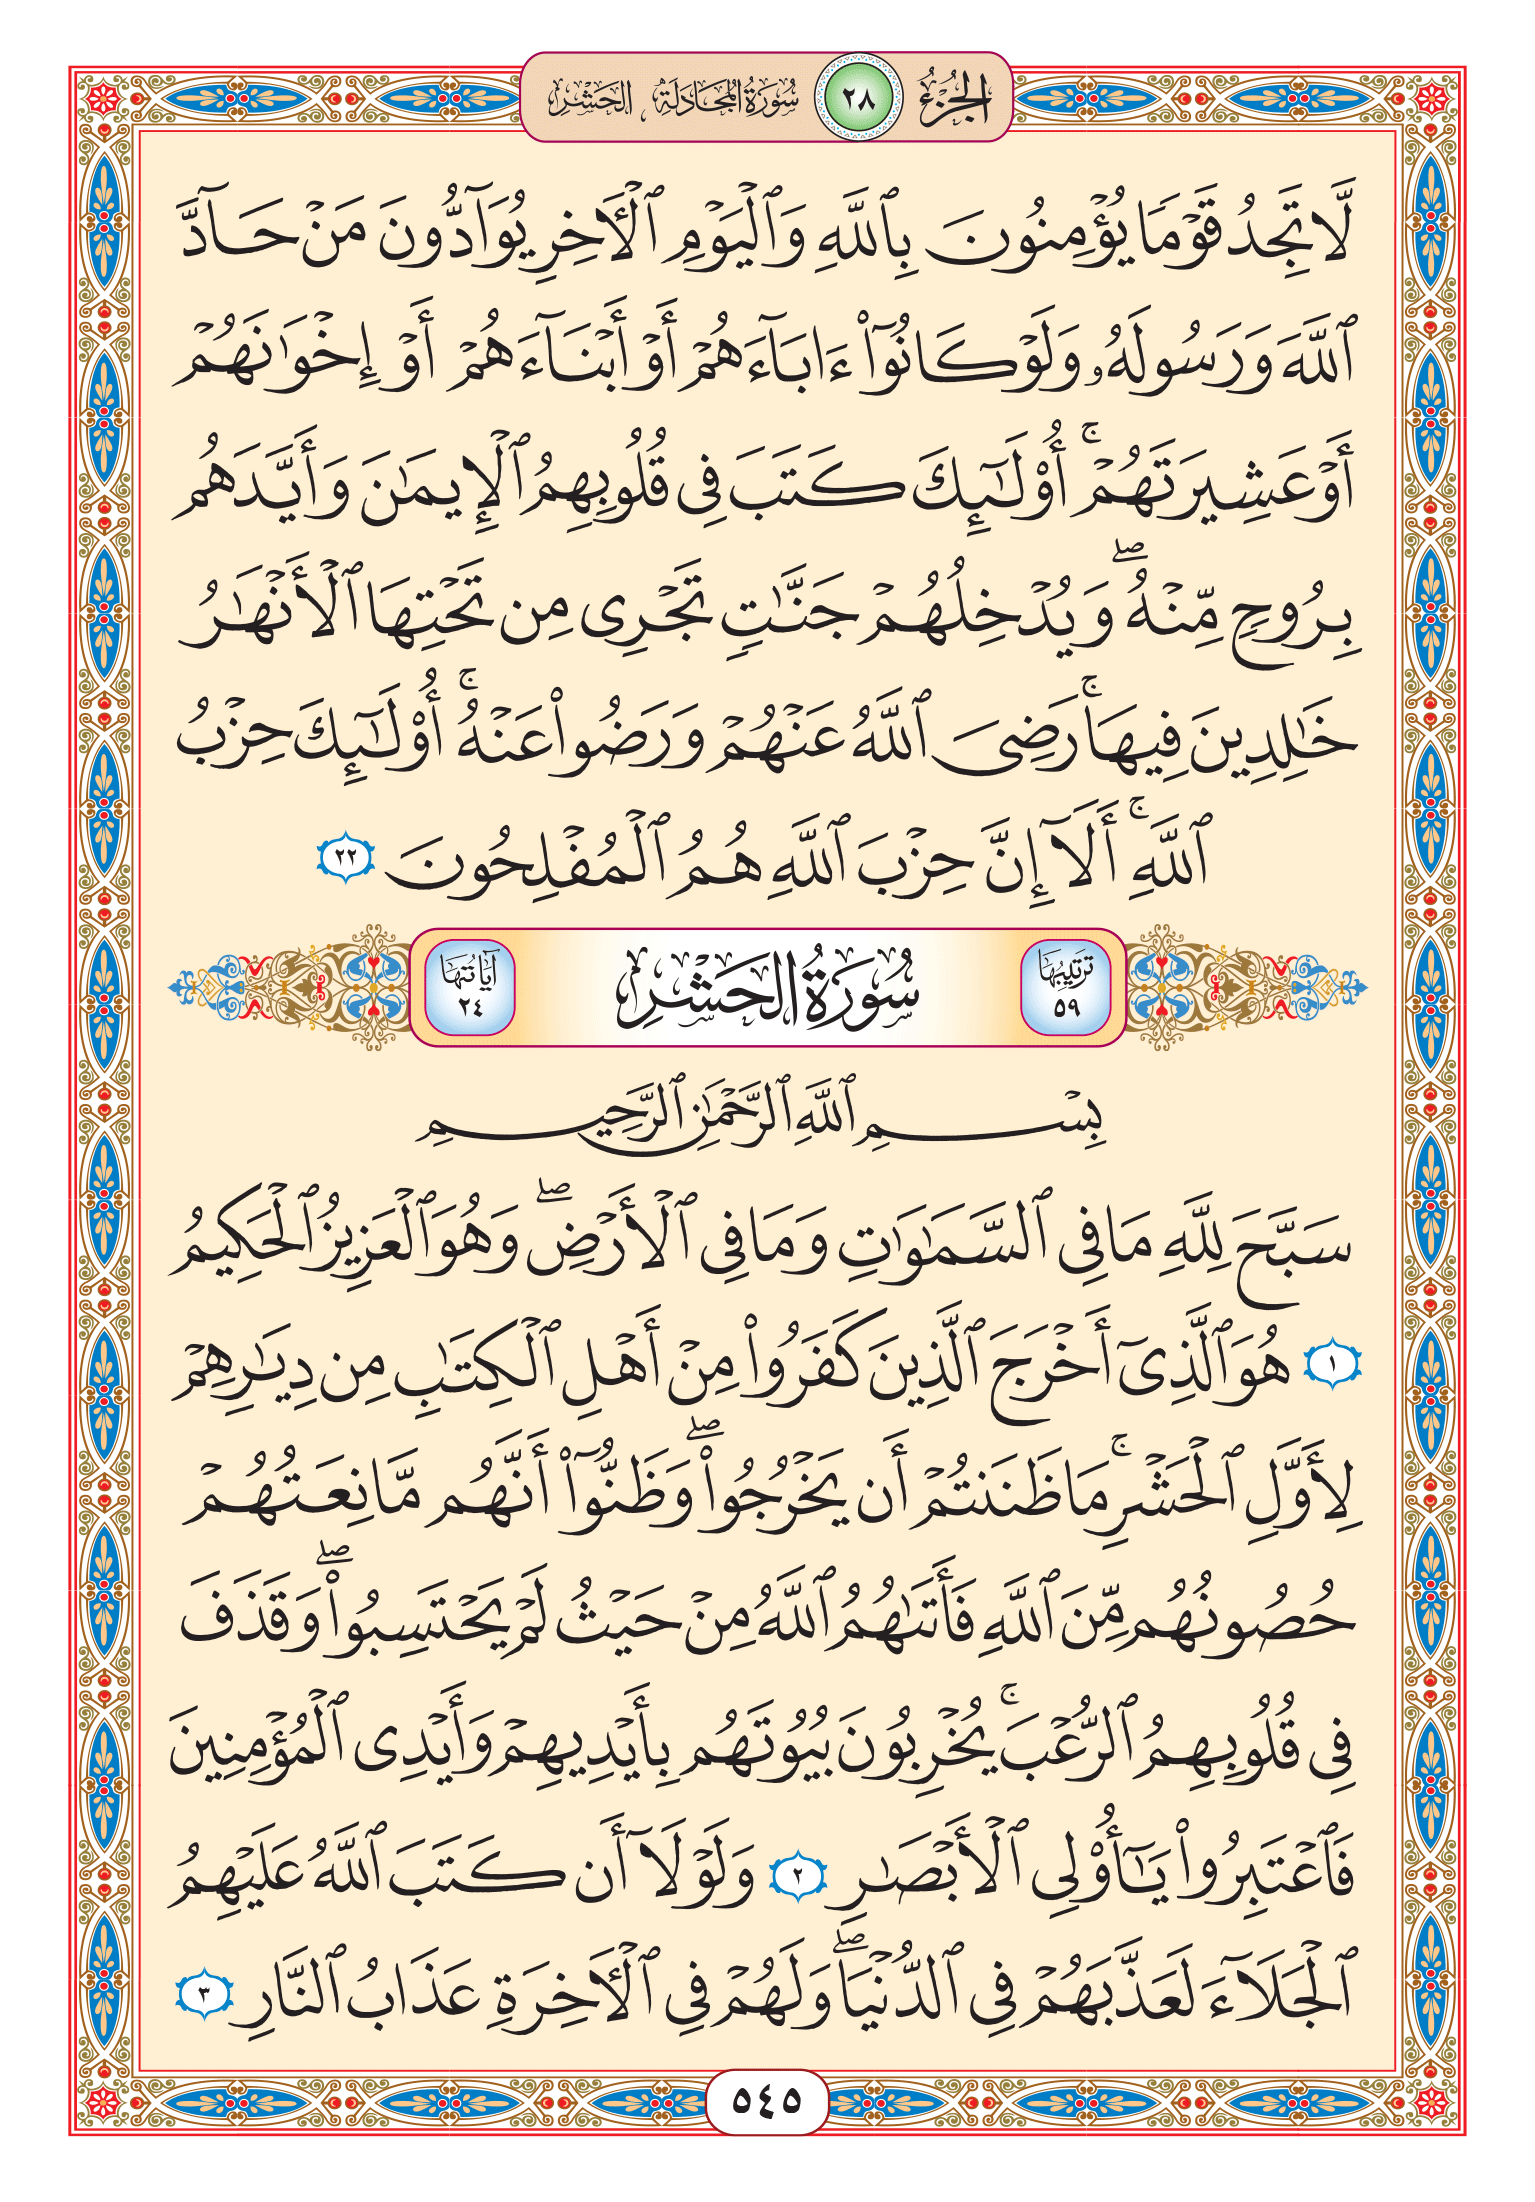 الجزء ٢٨ سورة المجادلة الحشر
لَّا تَجِدُ قَوۡمٗا يُؤۡمِنُونَ بِٱللَّهِ وَٱلۡيَوۡمِ ٱلۡأٓخِرِ يُوَآدُّونَ مَنۡ حَآدَّ
ٱللَّهَ وَرَسُولَهُۥ وَلَوۡ كَانُوٓاْ ءَابَآءَهُمۡ أَوۡ أَبۡنَآءَهُمۡ أَوۡ إِخۡوَٰنَهُمۡ
أَوۡ عَشِيرَتَهُمۡۚ أُوْلَٰٓئِكَ كَتَبَ فِي قُلُوبِهِمُ ٱلۡإِيمَٰنَ وَأَيَّدَهُم
بِرُوحٖ مِّنۡهُۖ وَيُدۡخِلُهُمۡ جَنَّٰتٖ تَجۡرِي مِن تَحۡتِهَا ٱلۡأَنۡهَٰرُ
خَٰلِدِينَ فِيهَاۚ رَضِيَ ٱللَّهُ عَنۡهُمۡ وَرَضُواْ عَنۡهُۚ أُوْلَٰٓئِكَ حِزۡبُ
ٱللَّهِۚ أَلَآ إِنَّ حِزۡبَ ٱللَّهِ هُمُ ٱلۡمُفۡلِحُونَ ٢٢
ترتيبها ٥٩ سُورَةُ الحَشْرِ آياتها ٢٤
بِسۡمِ ٱللَّهِ ٱلرَّحۡمَٰنِ ٱلرَّحِيمِ
سَبَّحَ لِلَّهِ مَا فِي ٱلسَّمَٰوَٰتِ وَمَا فِي ٱلۡأَرۡضِۖ وَهُوَ ٱلۡعَزِيزُ ٱلۡحَكِيمُ
١ هُوَ ٱلَّذِيٓ أَخۡرَجَ ٱلَّذِينَ كَفَرُواْ مِنۡ أَهۡلِ ٱلۡكِتَٰبِ مِن دِيَٰرِهِمۡ
لِأَوَّلِ ٱلۡحَشۡرِۚ مَا ظَنَنتُمۡ أَن يَخۡرُجُواْۖ وَظَنُّوٓاْ أَنَّهُم مَّانِعَتُهُمۡ
حُصُونُهُم مِّنَ ٱللَّهِ فَأَتَىٰهُمُ ٱللَّهُ مِنۡ حَيۡثُ لَمۡ يَحۡتَسِبُواْۖ وَقَذَفَ
فِي قُلُوبِهِمُ ٱلرُّعۡبَۚ يُخۡرِبُونَ بُيُوتَهُم بِأَيۡدِيهِمۡ وَأَيۡدِي ٱلۡمُؤۡمِنِينَ
فَٱعۡتَبِرُواْ يَٰٓأُوْلِي ٱلۡأَبۡصَٰرِ ٢ وَلَوۡلَآ أَن كَتَبَ ٱللَّهُ عَلَيۡهِمُ
ٱلۡجَلَآءَ لَعَذَّبَهُمۡ فِي ٱلدُّنۡيَاۖ وَلَهُمۡ فِي ٱلۡأٓخِرَةِ عَذَابُ ٱلنَّارِ ٣
٥٤٥